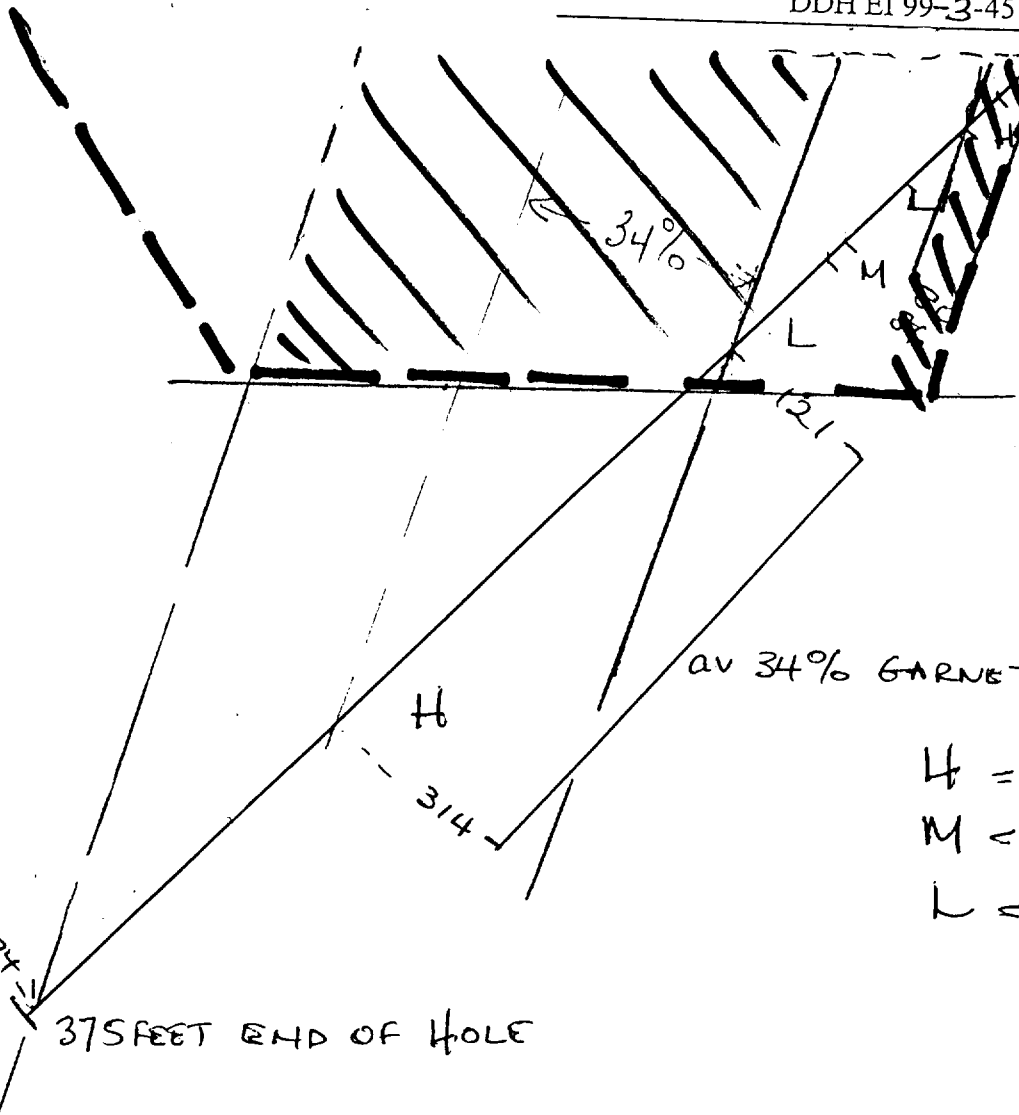 DDH EI 99-3-45
34%
H
L
M
L
121
av 34% GARNE
H
314
H =
M =
L =
375 FEET END OF HOLE